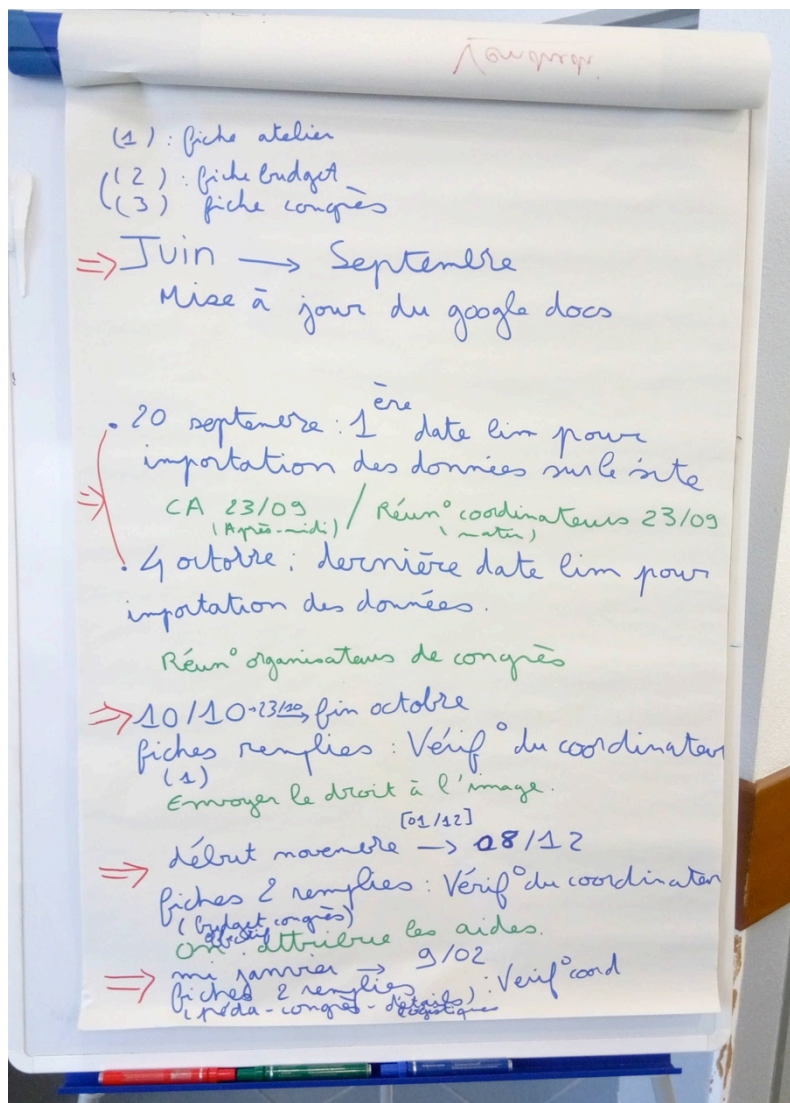 (1) : fiche atelier
(2) : fiche budget
(3) fiche congrès
⇒ Juin → Septembre
Mise à jour du google docs
. 20 septembre : 1ère date lim pour
importation des données sur le site
⇒ CA 23/09 / Réun° coordinateurs 23/09
(Après-midi) (matin)
. 4 octobre : dernière date lim pour
importation des données.
Réun° organisateurs de congrès
⇒ 10/10 → 23/10 → fin octobre
fiches remplies : Vérif° du coordinateur
(1)
Envoyer le droit à l'image.
[01/12]
⇒ début novembre → 08/12
fiches 2 remplies : Vérif° du coordinateur
(budget congrès)
on attribue les aides.
⇒ mi janvier → 9/02
fiches 2 remplies : Vérif° coord
(péda-congrès-détails)
logistiques